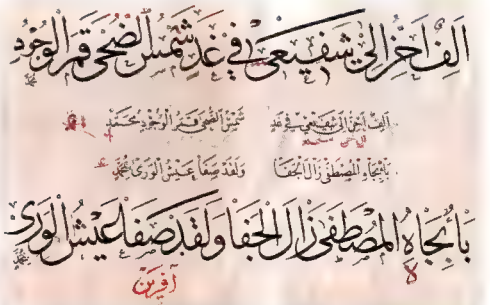 الف اخر الى شفيعى فى غد شمس الضحى قمر الوجود محمد
الف اخر الى شفيعى فى غد شمس الضحى قمر الوجود محمد
باء بجاه المصطفى زال الجفا ولقد صفا عيش الورى بمحمد
باء بجاه المصطفى زال الجفا ولقد صفا عيش الورى بمحمد
آفرين